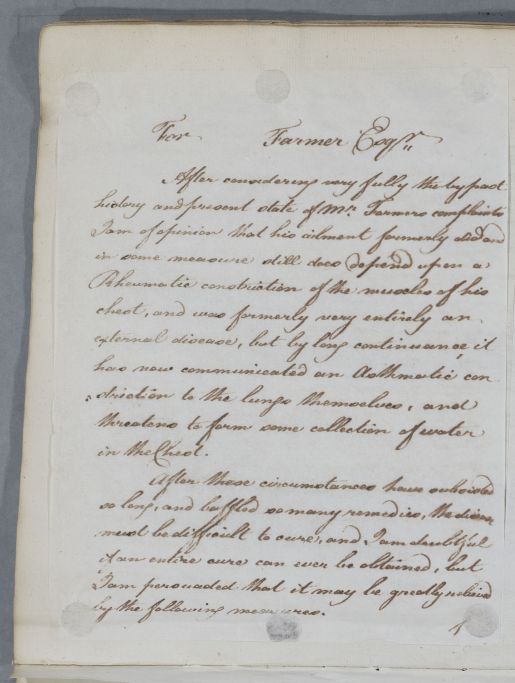 For Farmer Esqr.
After considering very fully the bypast
history and present state of Mr. Farmers complaints
I am of opinion that his ailment formerly did and
in some measure still does depend upon a
Rheumatic constriction of the muscles of his
chest, and was formerly very entirely an
external disease, but by long continuance, it
has now communicated an Asthmatic con
striction to the lungs themselves, and
threatens to form some collection of water
in the Chest.
After these circumstances have subsisted
so long, and baffled so many remedies, the disease
must be difficult to cure, and I am doubtful
if an entire cure can ever be obtained, but
I am persuaded that it may be greatly relieved
by the following measures.